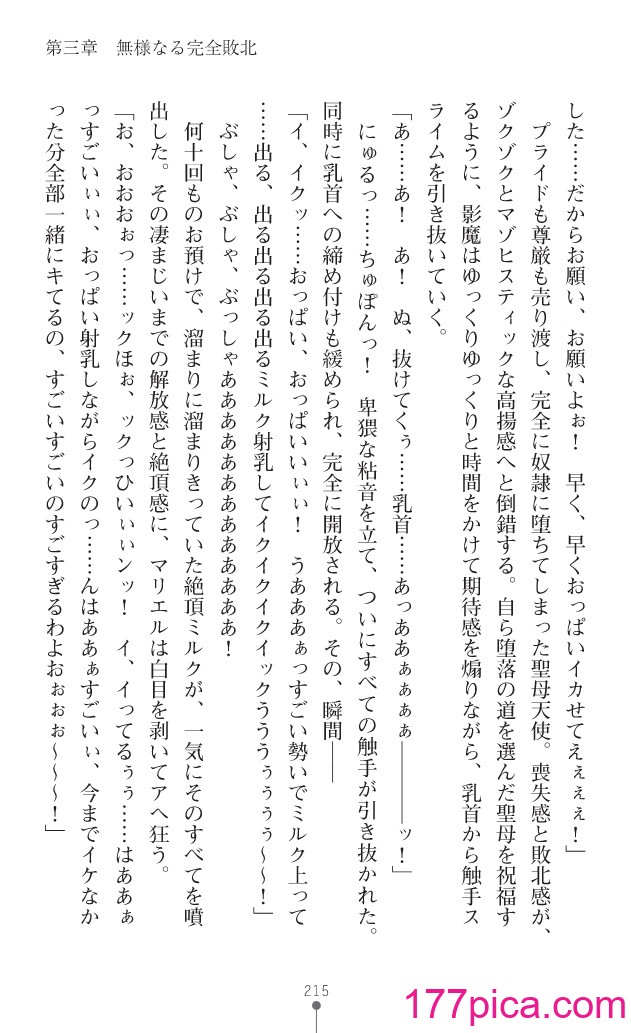 第三章　無様なる完全敗北
した……だからお願い、お願いよぉ！　早く、早くおっぱいイカせてえぇぇぇ！」
　プライドも尊厳も売り渡し、完全に奴隷に堕ちてしまった聖母天使。喪失感と敗北感が、
ゾクゾクとマゾヒスティックな高揚感へと倒錯する。自ら堕落の道を選んだ聖母を祝福す
るように、影魔はゆっくりゆっくりと時間をかけて期待感を煽りながら、乳首から触手ス
ライムを引き抜いていく。
「あ……あ！　あ！　ぬ、抜けてくぅ……乳首……あっああぁぁぁぁ――――ッ！」
　にゅるっ……ちゅぽんっ！　卑猥な粘音を立て、ついにすべての触手が引き抜かれた。
同時に乳首への締め付けも緩められ、完全に開放される。その、瞬間――
「イ、イクッ……おっぱい、おっぱいいぃぃ！　うあああぁっすごい勢いでミルク上って
……出る、出る出る出る出るミルク射乳してイクイクイクイックうううぅぅぅぅ～～！」
　ぶしゃ、ぶしゃ、ぶっしゃああああああああああああああ！
　何十回ものお預けで、溜まりに溜まりきっていた絶頂ミルクが、一気にそのすべてを噴
出した。その凄まじいまでの解放感と絶頂感に、マリエルは白目を剥いてアヘ狂う。
「お、おおおぉっ……ックほぉ、ックっひいぃぃンッ！　イ、イってるぅぅ……はああぁ
っすごいぃぃ、おっぱい射乳しながらイクのっ……んはああぁすごいぃ、今までイケなか
った分全部一緒にキてるの、すごいすごいのすごすぎるわよおぉぉぉ～～～！」
215
177pica.com